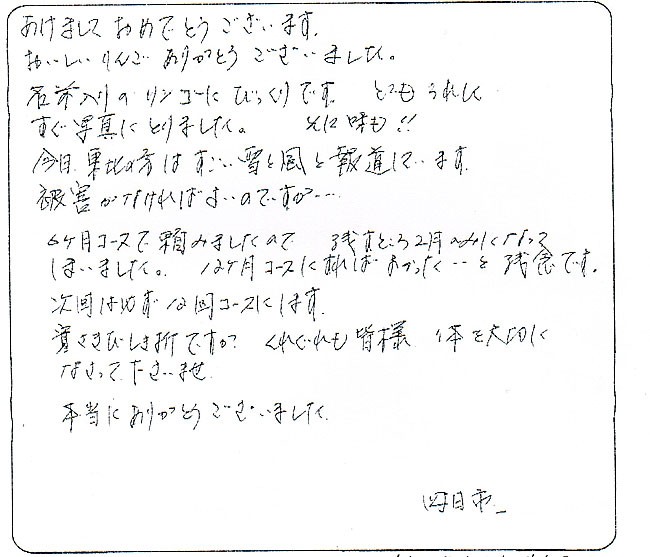 あけまして おめでとう ございます。
おいしい りんご ありがとう ございました。
名前入りの リンゴに びっくりです。 とても うれしく
すぐ 写真に とりました。 次に 味も!!
今日 東北の方は すごい 雪と風と 報道して います。
被害が なければ よいのですが……
6ヶ月コースで 頼みましたので 残すところ 2月のみになって
しまいました。 12ヶ月コースに すれば よかった‥と 残念です。
次回は必ず 12回コースにします。
寒さきびしき折ですが くれぐれも 皆様 体を大切に
なさって下さいませ
本当に ありがとう ございました。
四日市